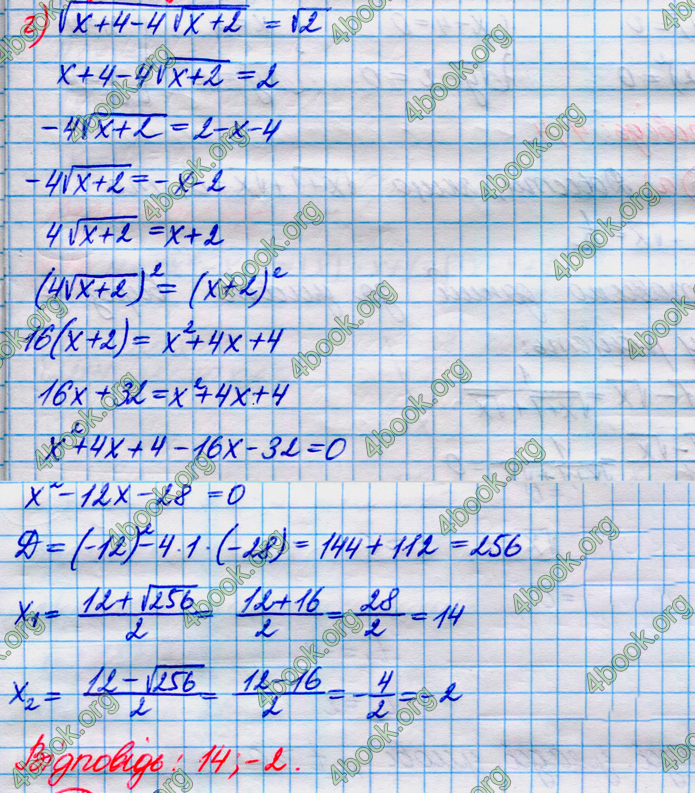 г) √(x+4-4√(x+2)) = √2
x+4-4√(x+2) = 2
-4√(x+2) = 2-x-4
-4√(x+2) = -x-2
4√(x+2) = x+2
(4√(x+2))² = (x+2)²
16(x+2) = x²+4x+4
16x+32 = x²+4x+4
x²+4x+4-16x-32=0
x²-12x-28=0
Д = (-12)²-4·1·(-28) = 144+112 = 256
x₁ = (12+√256)/2 = (12+16)/2 = 28/2 = 14
x₂ = (12-√256)/2 = (12-16)/2 = -4/2 = -2
Відповідь: 14; -2.
4book.org